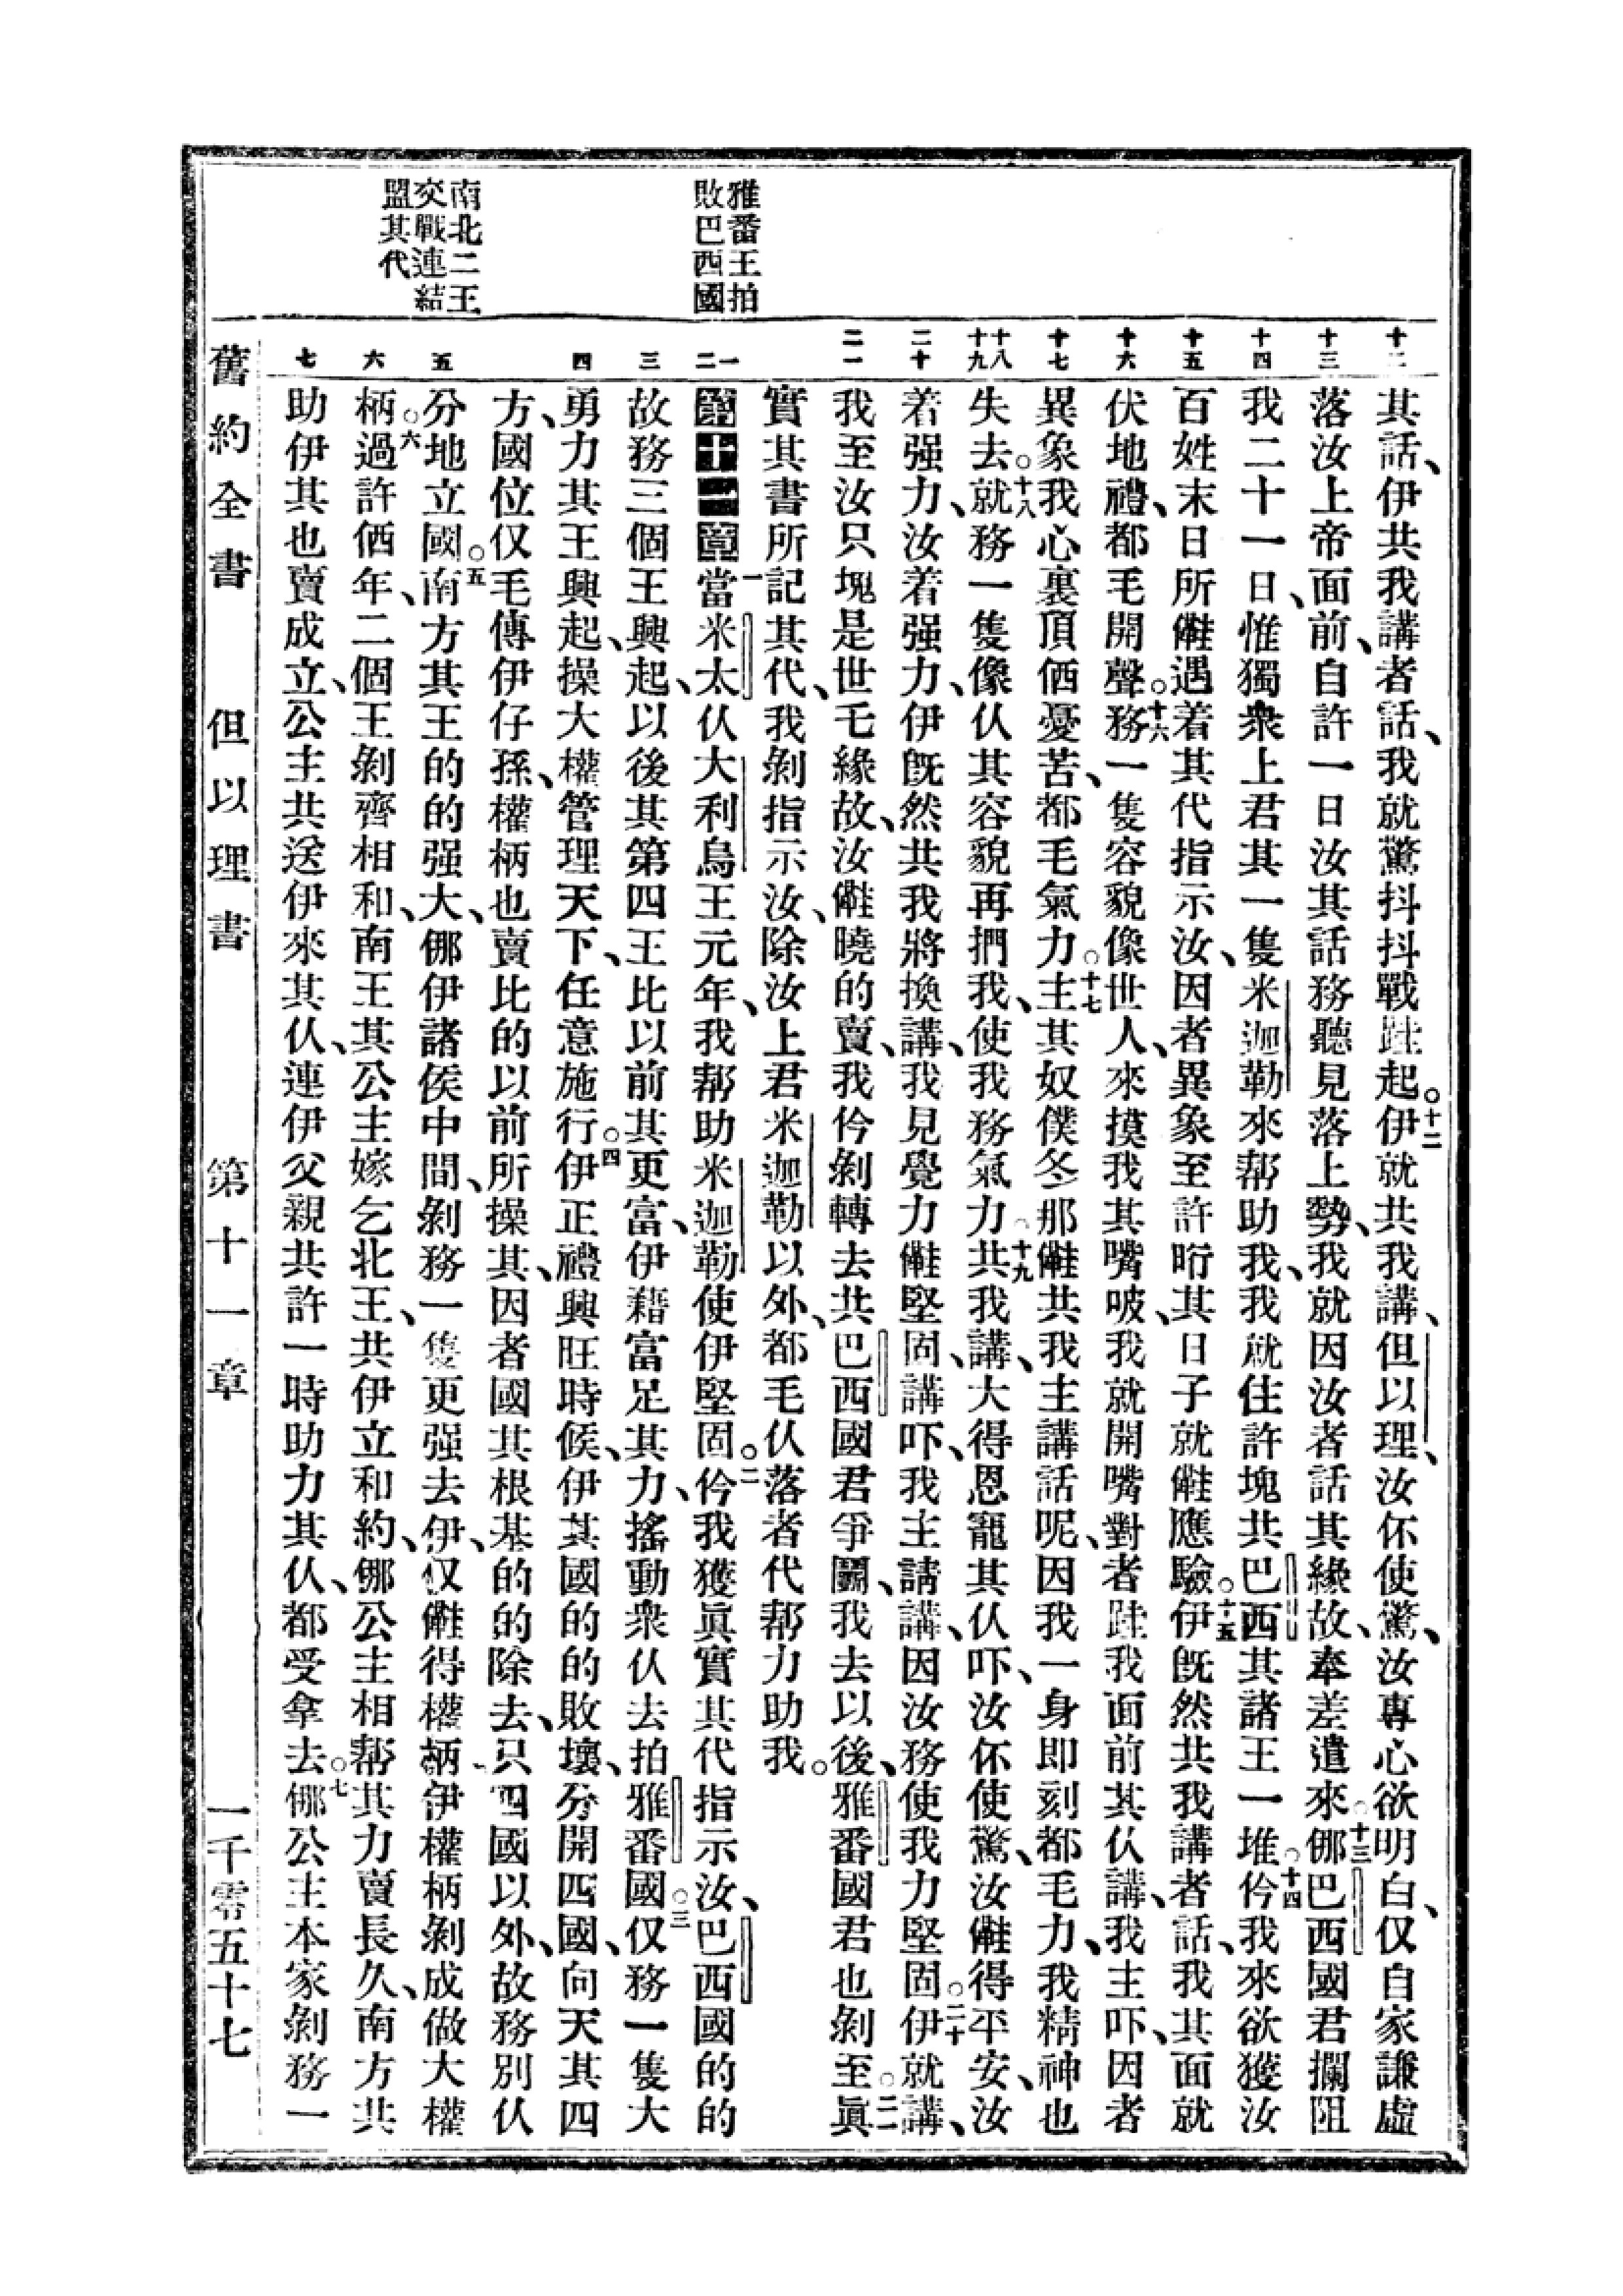 雅番王拍
敗巴西國
南北二王
交戰連結
盟其代
十二
十三
十四
十五
十六
十七
十八
十九
二十
二一
一
二
三
四
五
六
七
其話、伊共我講者話、我就驚抖抖戰跬起。十二伊就共我講、但以理、汝伓使驚、汝專心欲明白、仅自家謙虛
落汝上帝面前、自許一日汝其話務聽見落上勢、我就因汝者話其緣故、奉差遣來。十三㑚巴西國君攔阻
我二十一日、惟獨衆上君其一隻、米迦勒來帮助我、我就住許塊共巴西其諸王一堆。十四仱我來欲獲汝
百姓末日所𣍐遇着其代指示汝、因者異象至許昕其日子就𣍐應驗。十五伊旣然共我講者話、我其面就
伏地禮、都毛開聲。十六務一隻容貌像世人、來摸我其嘴㖞、我就開嘴對者跬我面前其仈講、我主吓、因者
異象我心裏頂価憂苦、都毛氣力。十七主其奴僕冬那𣍐共我主講話呢、因我一身卽刻都毛力、我精神也
失去。十八就務一隻像仈其容貌再捫我、使我務氣力。十九共我講、大得恩寵其仈吓、汝伓使驚、汝𣍐得平安、汝
着强力、汝着强力、伊旣然共我將換講、我見覺力𣍐堅固、講吓、我主請講、因汝務使我力堅固。二十伊就講、
我至汝只塊是世乇緣故、汝𣍐曉的賣、我仱剝轉去共巴西國君爭鬭、我去以後、雅番國君也剝至。二一眞
實其書所記其代、我剝指示汝、除汝上君米迦勒以外、都毛仈落者代帮力助我。
第十一章一當米太仈大利烏王元年、我帮助米迦勒使伊堅固。二仱我獲眞實其代指示汝、巴西國的的
故務三個王興起、以後其第四王比以前其更富、伊藉富足其力、搖動衆仈去拍雅番國。三仅務一隻大
勇力其王興起、操大權管理天下、任意施行。四伊正禮興旺時候、伊其國的的敗壞、分開四國、向天其四
方、國位仅毛傳伊仔孫、權柄也賣比的以前所操其、因者國其根基的的除去、只四國以外、故務別仈
分地立國。五南方其王的的强大、㑚伊諸侯中間、剝務一隻更强去伊、仅𣍐得權柄、伊權柄剝成做大權
柄。六過許価年、二個王剝齊相和、南王其公主嫁乞北王、共伊立和約、㑚公主相帮其力賣長久、南方共
助伊其也賣成立、公主共送伊來其仈、連伊父親共許一時助力其仈、都受拿去。七㑚公主本家剝務一
舊約全書　但以理書　第十一章　一千零五十七